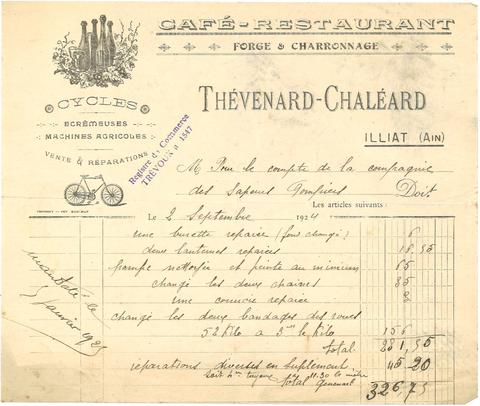 CAFÉ-RESTAURANT
FORGE & CHARRONNAGE
THÉVENARD-CHALÉARD
ILLIAT (AIN)
CYCLES
ECRÉMEUSES
MACHINES AGRICOLES
VENTE & RÉPARATIONS
Registre du Commerce
TRÉVOUX n° 1547
M Pour le compte de la compagnie
des Sapeurs Pompiers Doit
Les articles suivants :
Le 2 Septembre 1924
une burette reparée (fond changé) 6
deux lanternes reparées 18,95
pompe nettoyée et peinte au minimum 65
changé les deux chaines 35
une courroie reparée
changé les deux bandages des roues
52 Kilo a 3 le kilo 156
total
reparations diverses en suplement 45 20
soit 4m tuyaux 11.30 le mètre
total general 326,75
mandaté le
janvier 1925